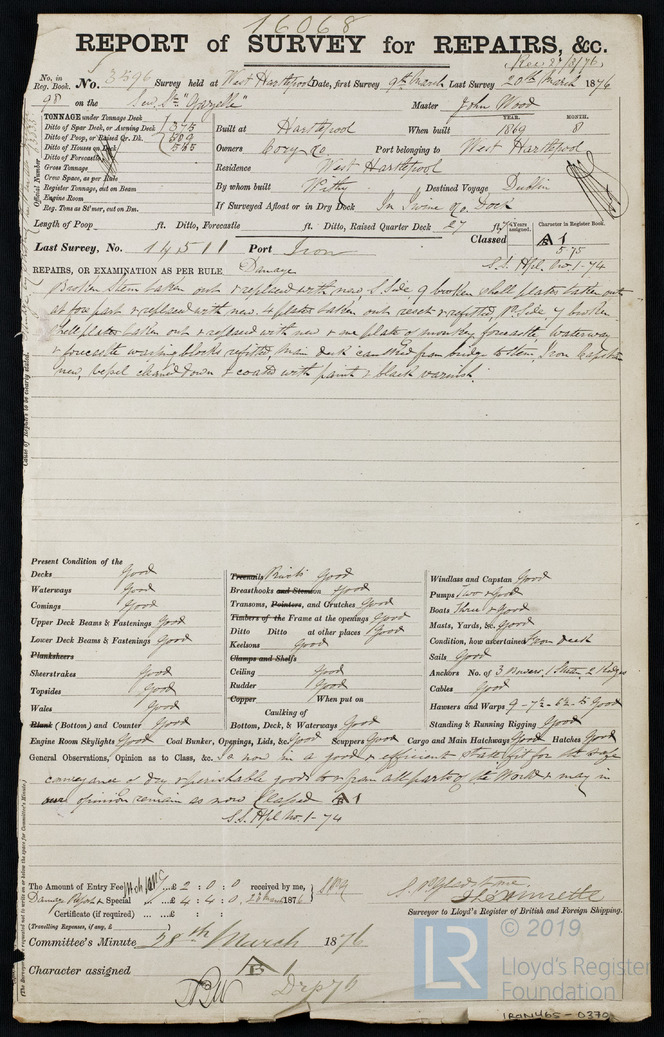 16068
REPORT of SURVEY for REPAIRS, &c.
No. in Reg. Book. No. 3596 Survey held at West Hartlepool Date, first Survey 9th March Last Survey 20th March 1876
98 on the "Gazelle" Master John Wood
TONNAGE under Tonnage Deck
Ditto of Spar Deck, or Awning Deck 375
Ditto of Poop, or Raised Qr. Dk. 504
Ditto of Houses on Deck 565
Ditto of Forecastle
Gross Tonnage
Crew Space, as per Rule
Register Tonnage, cut on Beam
Engine Room
Reg. Tons as St'mer, cut on Bm.
Official Number
Built at Hartlepool When built YEAR. 1869 MONTH. 8
Owners Port belonging to West Hartlepool
Residence West Hartlepool
By whom built Withy Destined Voyage Dublin
If Surveyed Afloat or in Dry Dock In Dock
Length of Poop ft. Ditto, Forecastle ft. Ditto, Raised Quarter Deck 27
Years assigned. Character in Register Book.
Last Survey, No. 14511 Port Iron Classed A 1
5-75
S.S. Hpl. No. 1-74
REPAIRS, OR EXAMINATION AS PER RULE Damage
Broken Stem taken out & replaced with new S. Side 9 broken shell plates taken out
at fore part & replaced with new, 4 plates taken out reset & refitted, Pt Side 7 broken
Shell plates taken out & replaced with new & one plate of monkey forecastle, waterway
& forecastle warping blocks refitted, Main deck caulked from bridge to Stem, Iron Capstan
new, Vessel cleaned down & coated with paint & black varnish.
Cause of Repairs to be clearly stated.
Present Condition of the
Decks Good
Waterways Good
Comings Good
Upper Deck Beams & Fastenings Good
Lower Deck Beams & Fastenings Good
Planksheers
Sheerstrakes Good
Topsides Good
Wales Good
Plank (Bottom) and Counter Good
Treenails Rivets Good
Breasthooks and Stemson Good
Transoms, Pointers, and Crutches Good
Timbers of the Frame at the openings Good
Ditto Ditto at other places Good
Keelsons Good
Clamps and Shelfs
Ceiling Good
Rudder Good
Copper When put on
Caulking of
Bottom, Deck, & Waterways Good
Windlass and Capstan Good
Pumps Two & Good
Boats Three & Good
Masts, Yards, &c. Good
Condition, how ascertained From deck
Sails Good
Anchors No. of 3 Bowers, 1 Stream, 2 Kedges
Cables Good
Hawsers and Warps 9 - 7½ - 6½ - 5 Good
Standing & Running Rigging Good
Engine Room Skylights Good Coal Bunker, Openings, Lids, &c. Good Scuppers Good Cargo and Main Hatchways Good Hatches Good
General Observations, Opinion as to Class, &c. Is now in a good & efficient state & fit for the safe
conveyance of dry & perishable goods to & from all parts of the World & may in
our opinion remain as now Classed A 1
S.S. Hpl No. 1-74
The Amount of Entry Fee ...£ 2 : 0 : 0 received by me,
Damage Report & Special ...£ 4 : 4 : 0, 1876
Certificate (if required) ...
(Travelling Expenses, if any, £ )
Surveyor to Lloyd's Register of British and Foreign Shipping.
Committee's Minute 28th March 1876
Character assigned A 1
© 2019
LR
Lloyd's Register
Foundation
IRON465-0370